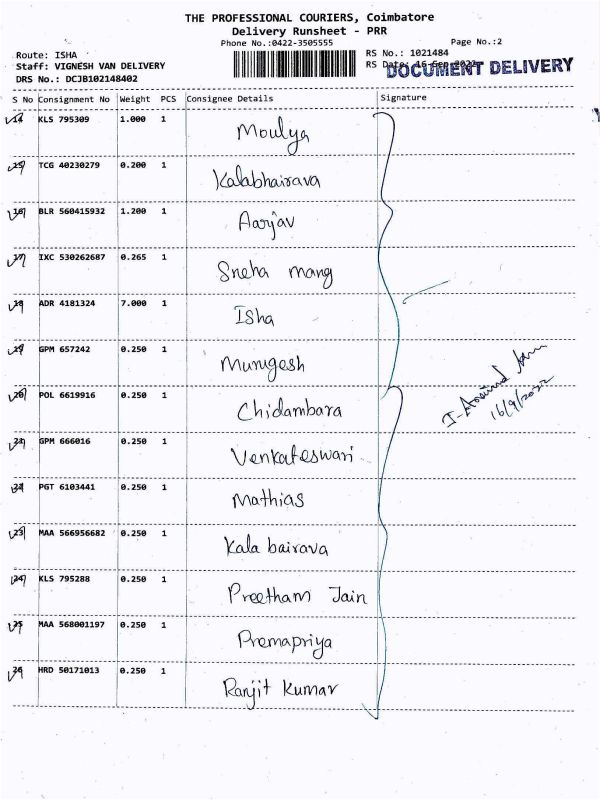 THE PROFESSIONAL COURIERS, Coimbatore
Delivery Runsheet - PRR
Phone No.:0422-3505555
Page No.:2
Route: ISHA
RS No.: 1021484
Staff: VIGNESH VAN DELIVERY
RS Date: 16-Sep-2022
DOCUMENT DELIVERY
DRS No.: DCJB102148402
S No Consignment No Weight PCS Consignee Details Signature
14 KLS 795309 1.000 1 Moulya
15 TCG 40230279 0.200 1 Kalabhairava
16 BLR 560415932 1.200 1 Aarjav
17 IXC 530262687 0.265 1 Sneha mang
18 ADR 4181324 7.000 1 ISha
19 GPM 657242 0.250 1 Murugesh
20 POL 6619916 0.250 1 Chidambara
16/9/2022
21 GPM 666016 0.250 1 Venkateswari
22 PGT 6103441 0.250 1 Mathias
23 MAA 566956682 0.250 1 Kala bairava
24 KLS 795288 0.250 1 Preetham Jain
25 MAA 568001197 0.250 1 Premapriya
26 HRD 50171013 0.250 1 Ranjit Kumar